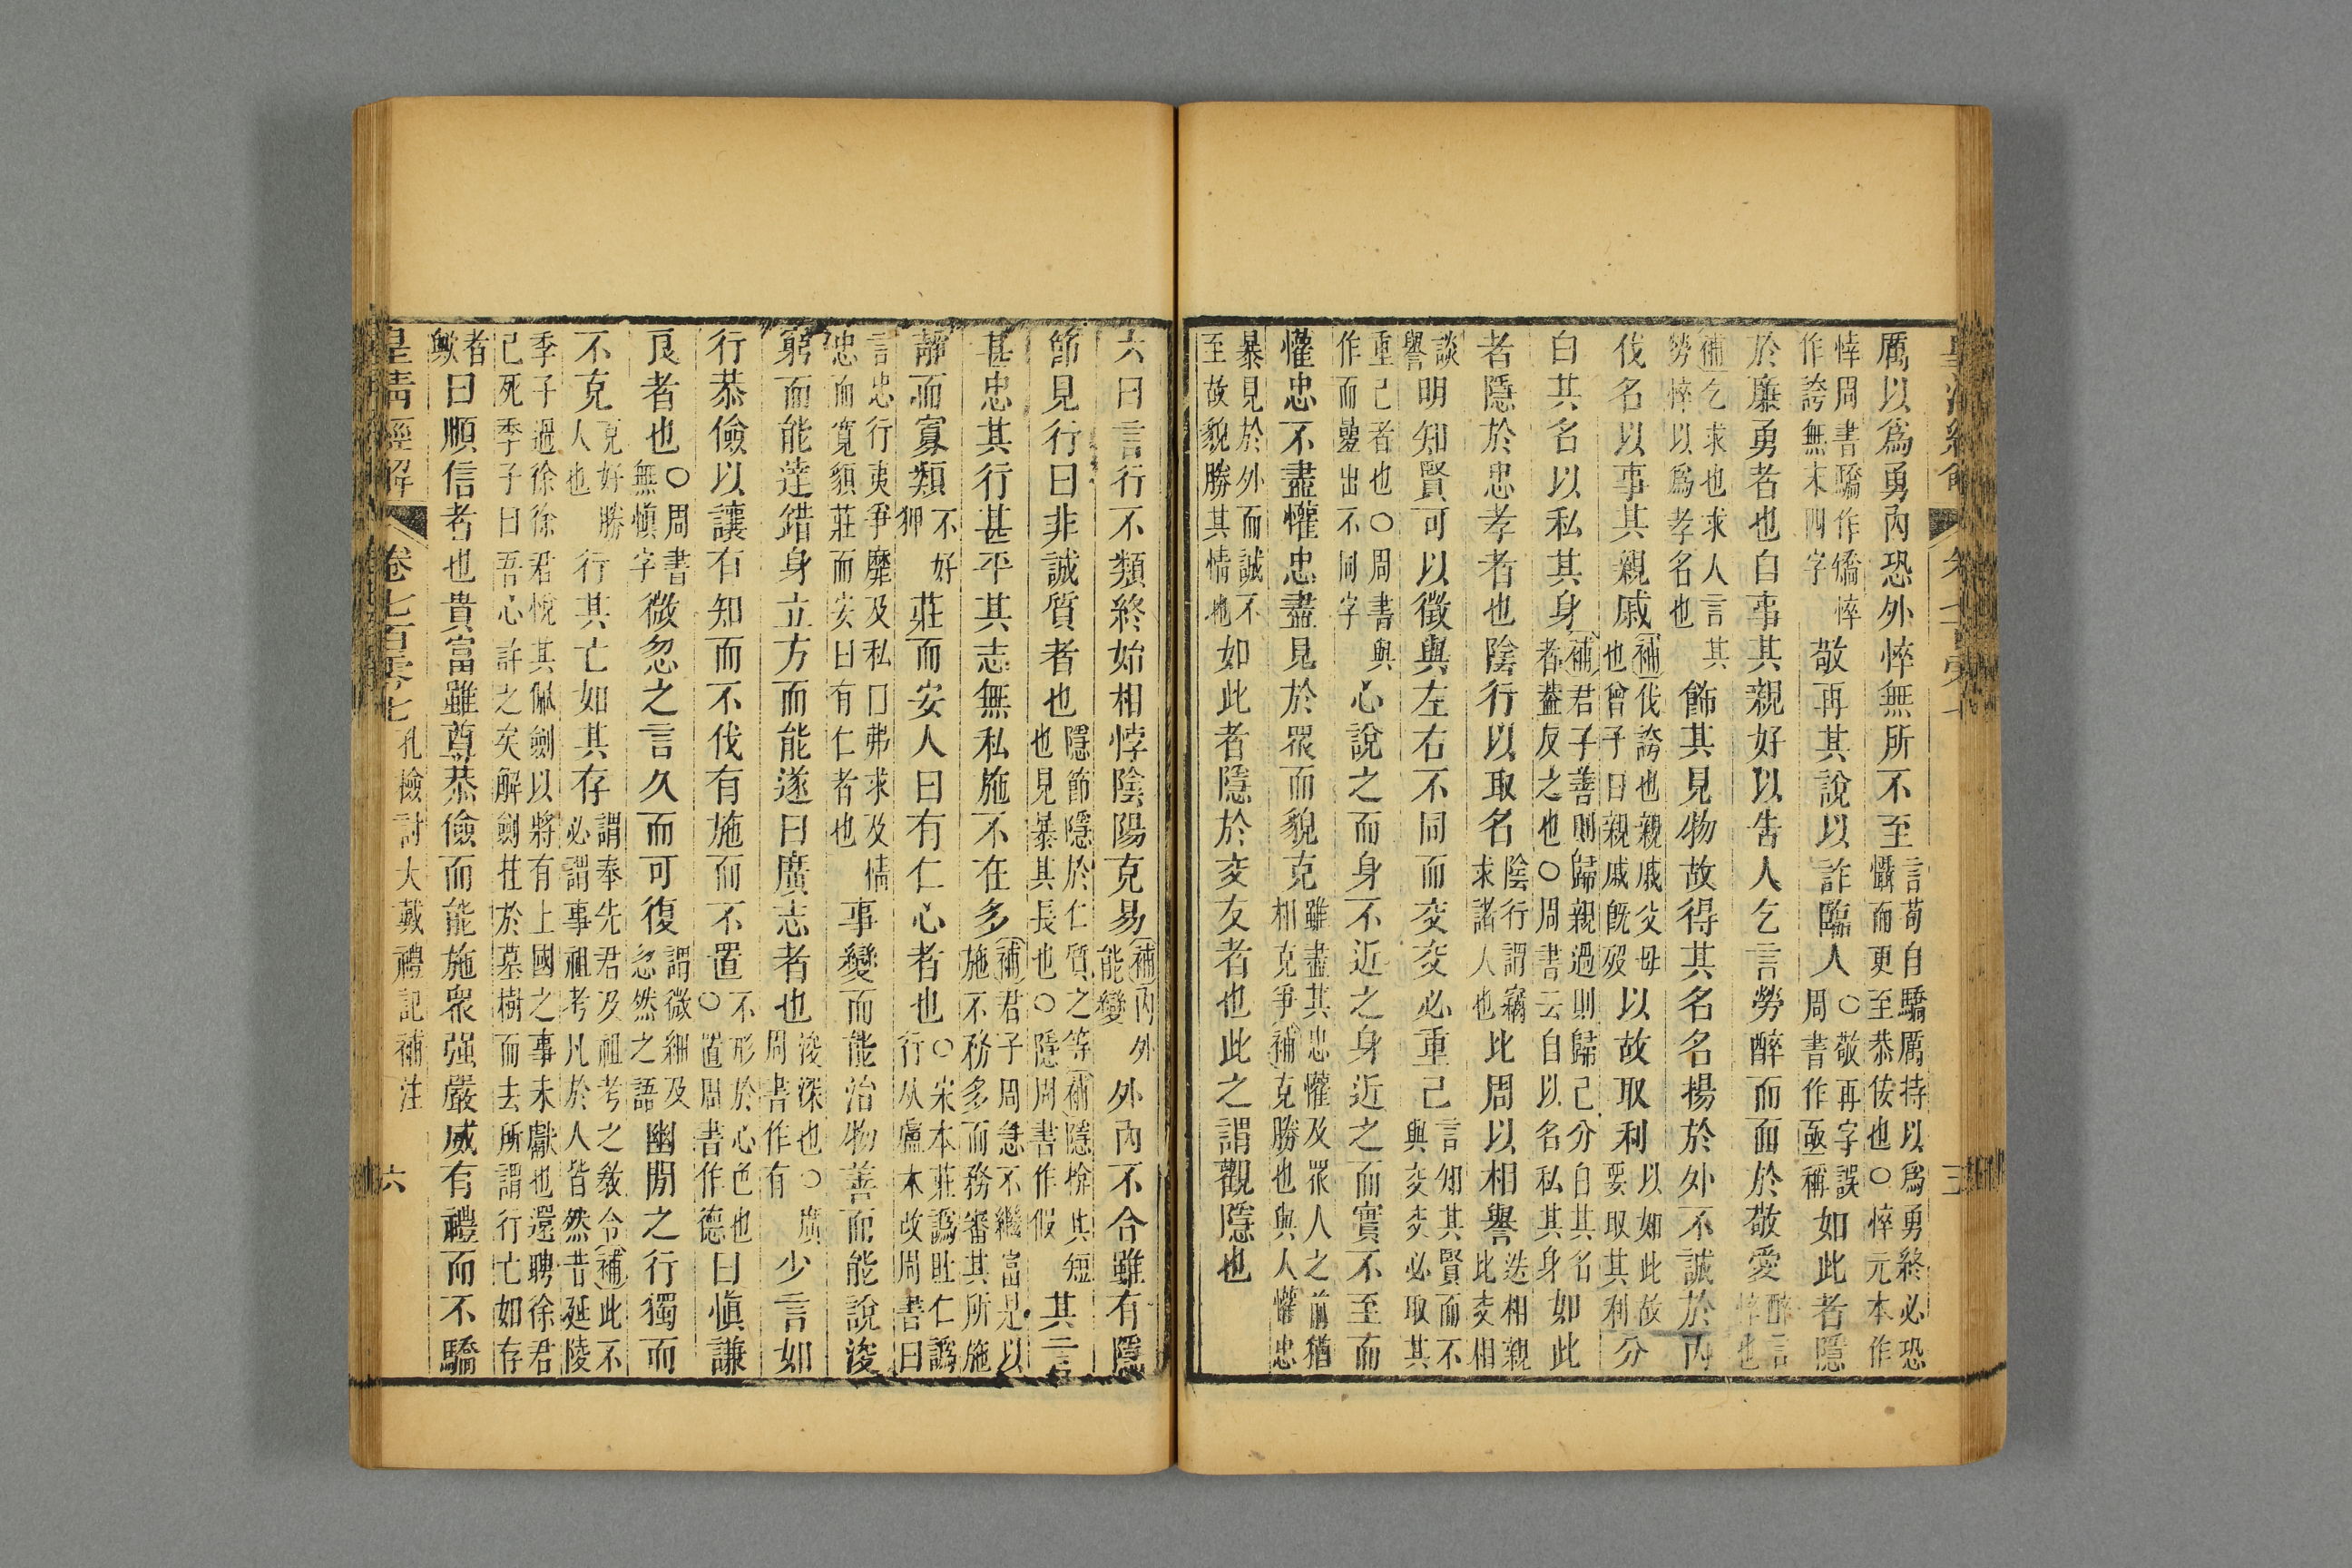 厲以爲勇內恐外悴無所不至言苟自驕厲持以爲勇終必恐懾而更至恭佞也○悴元本作
悴周書驕作憍悴作誇無末四字敬再其說以詐臨人○敬再字誤周書作亟稱如此者隱
於廉勇者也自事其親好以告人乞言勞醉而面於敬愛醉言悴也
補乞求也求人言其勞悴以爲孝名也飾其見物故得其名名揚於外不誠於內
伐名以事其親戚補伐誇也親戚父母也曾子曰親戚旣歿以故取利以如此故要取其利分
白其名以私其身補君子善則歸親過則歸己分白其名者葢反之也○周書云自以名私其身如此
者隱於忠孝者也陰行以取名陰行謂竊求諸人也比周以相譽迭相親比交相
談譽明知賢可以徵與左右不同而交交必重己言知其賢而不與交交必取其
重己者也○周書與作而變出不同字心說之而身不近之身近之而實不至而
懽忠不盡懽忠盡見於眾而貌克雖盡其忠懽及眾人之前猶相克爭補克勝也與人懽忠
暴見於外而誠不至故貌勝其情也如此者隱於交友者也此之謂觀隱也
六曰言行不類終始相悖陰陽克易補內外能變外內不合雖有隱
節見行曰非誠質者也隱節隱於仁質之等補隱揜其短也見暴其長也○隱周書作假其言
甚忠其行甚平其志無私施不在多補君子周急不繼富是以施不務多而務審其所施
靜而寡類不好狎莊而安人曰有仁心者也○宋本莊譌𧵳仁譌行从盧本改周書曰
言忠行夷爭靡及私囗弗求及情忠而寬貌莊而安曰有仁者也事變而能治物善而能說浚
窮而能達錯身立方而能遂曰廣志者也浚深也○廣周書作有少言如
行恭儉以讓有知而不伐有施而不置不形於心色也○置周書作德曰愼謙
良者也○周書無愼字微忽之言久而可復謂微細及忽然之語幽閒之行獨而
不克克好勝人也行其亡如其存謂奉先君及祖考之敎令必謂事祖考凡於人皆然補此不昔延陵
季子過徐徐君悅其佩劍以將有上國之事未獻也還聘徐君已死季子曰吾心許之矣解劍挂於墓樹而去所謂行亡如存
者歟曰順信者也貴富雖尊恭儉而能施眾强嚴威有禮而不驕
皇清經解 卷七百零七 孔檢討大戴禮記補注 六